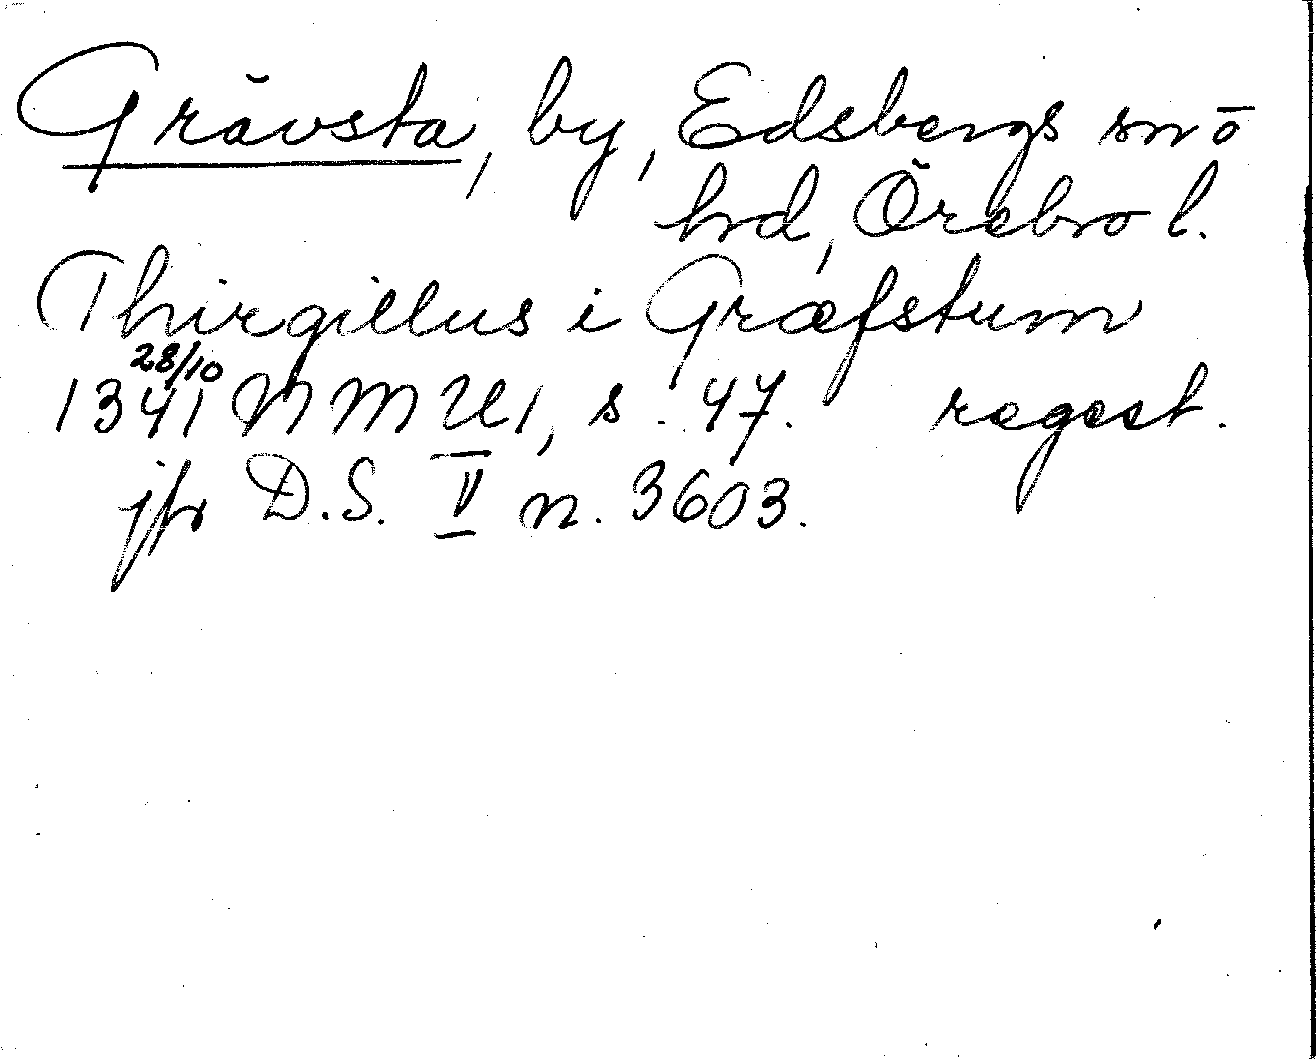 Grävsta, by, Edsbergs sn o
hd, Örebro l.
Thirgillus i Græfstum
28/10
1341 NMU1, s. 47. regest.
jfr D.S. V n. 3603.